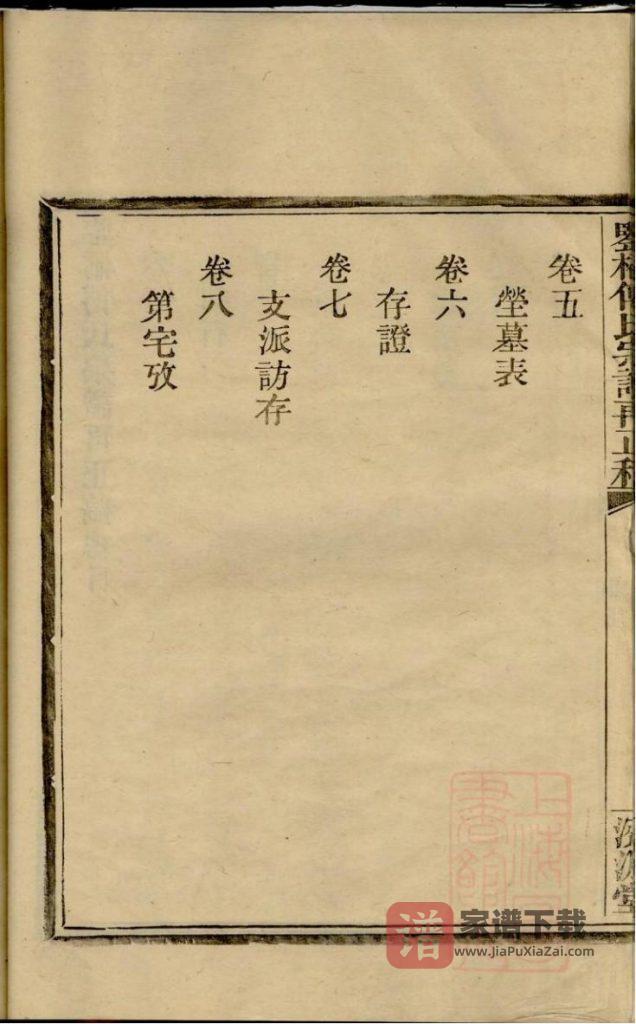 卷五
塋墓表
卷六
存證
卷七
支派訪存
卷八
第宅攷
上海
書館
谱
家谱下载
www.JiaPuXiaZai.com